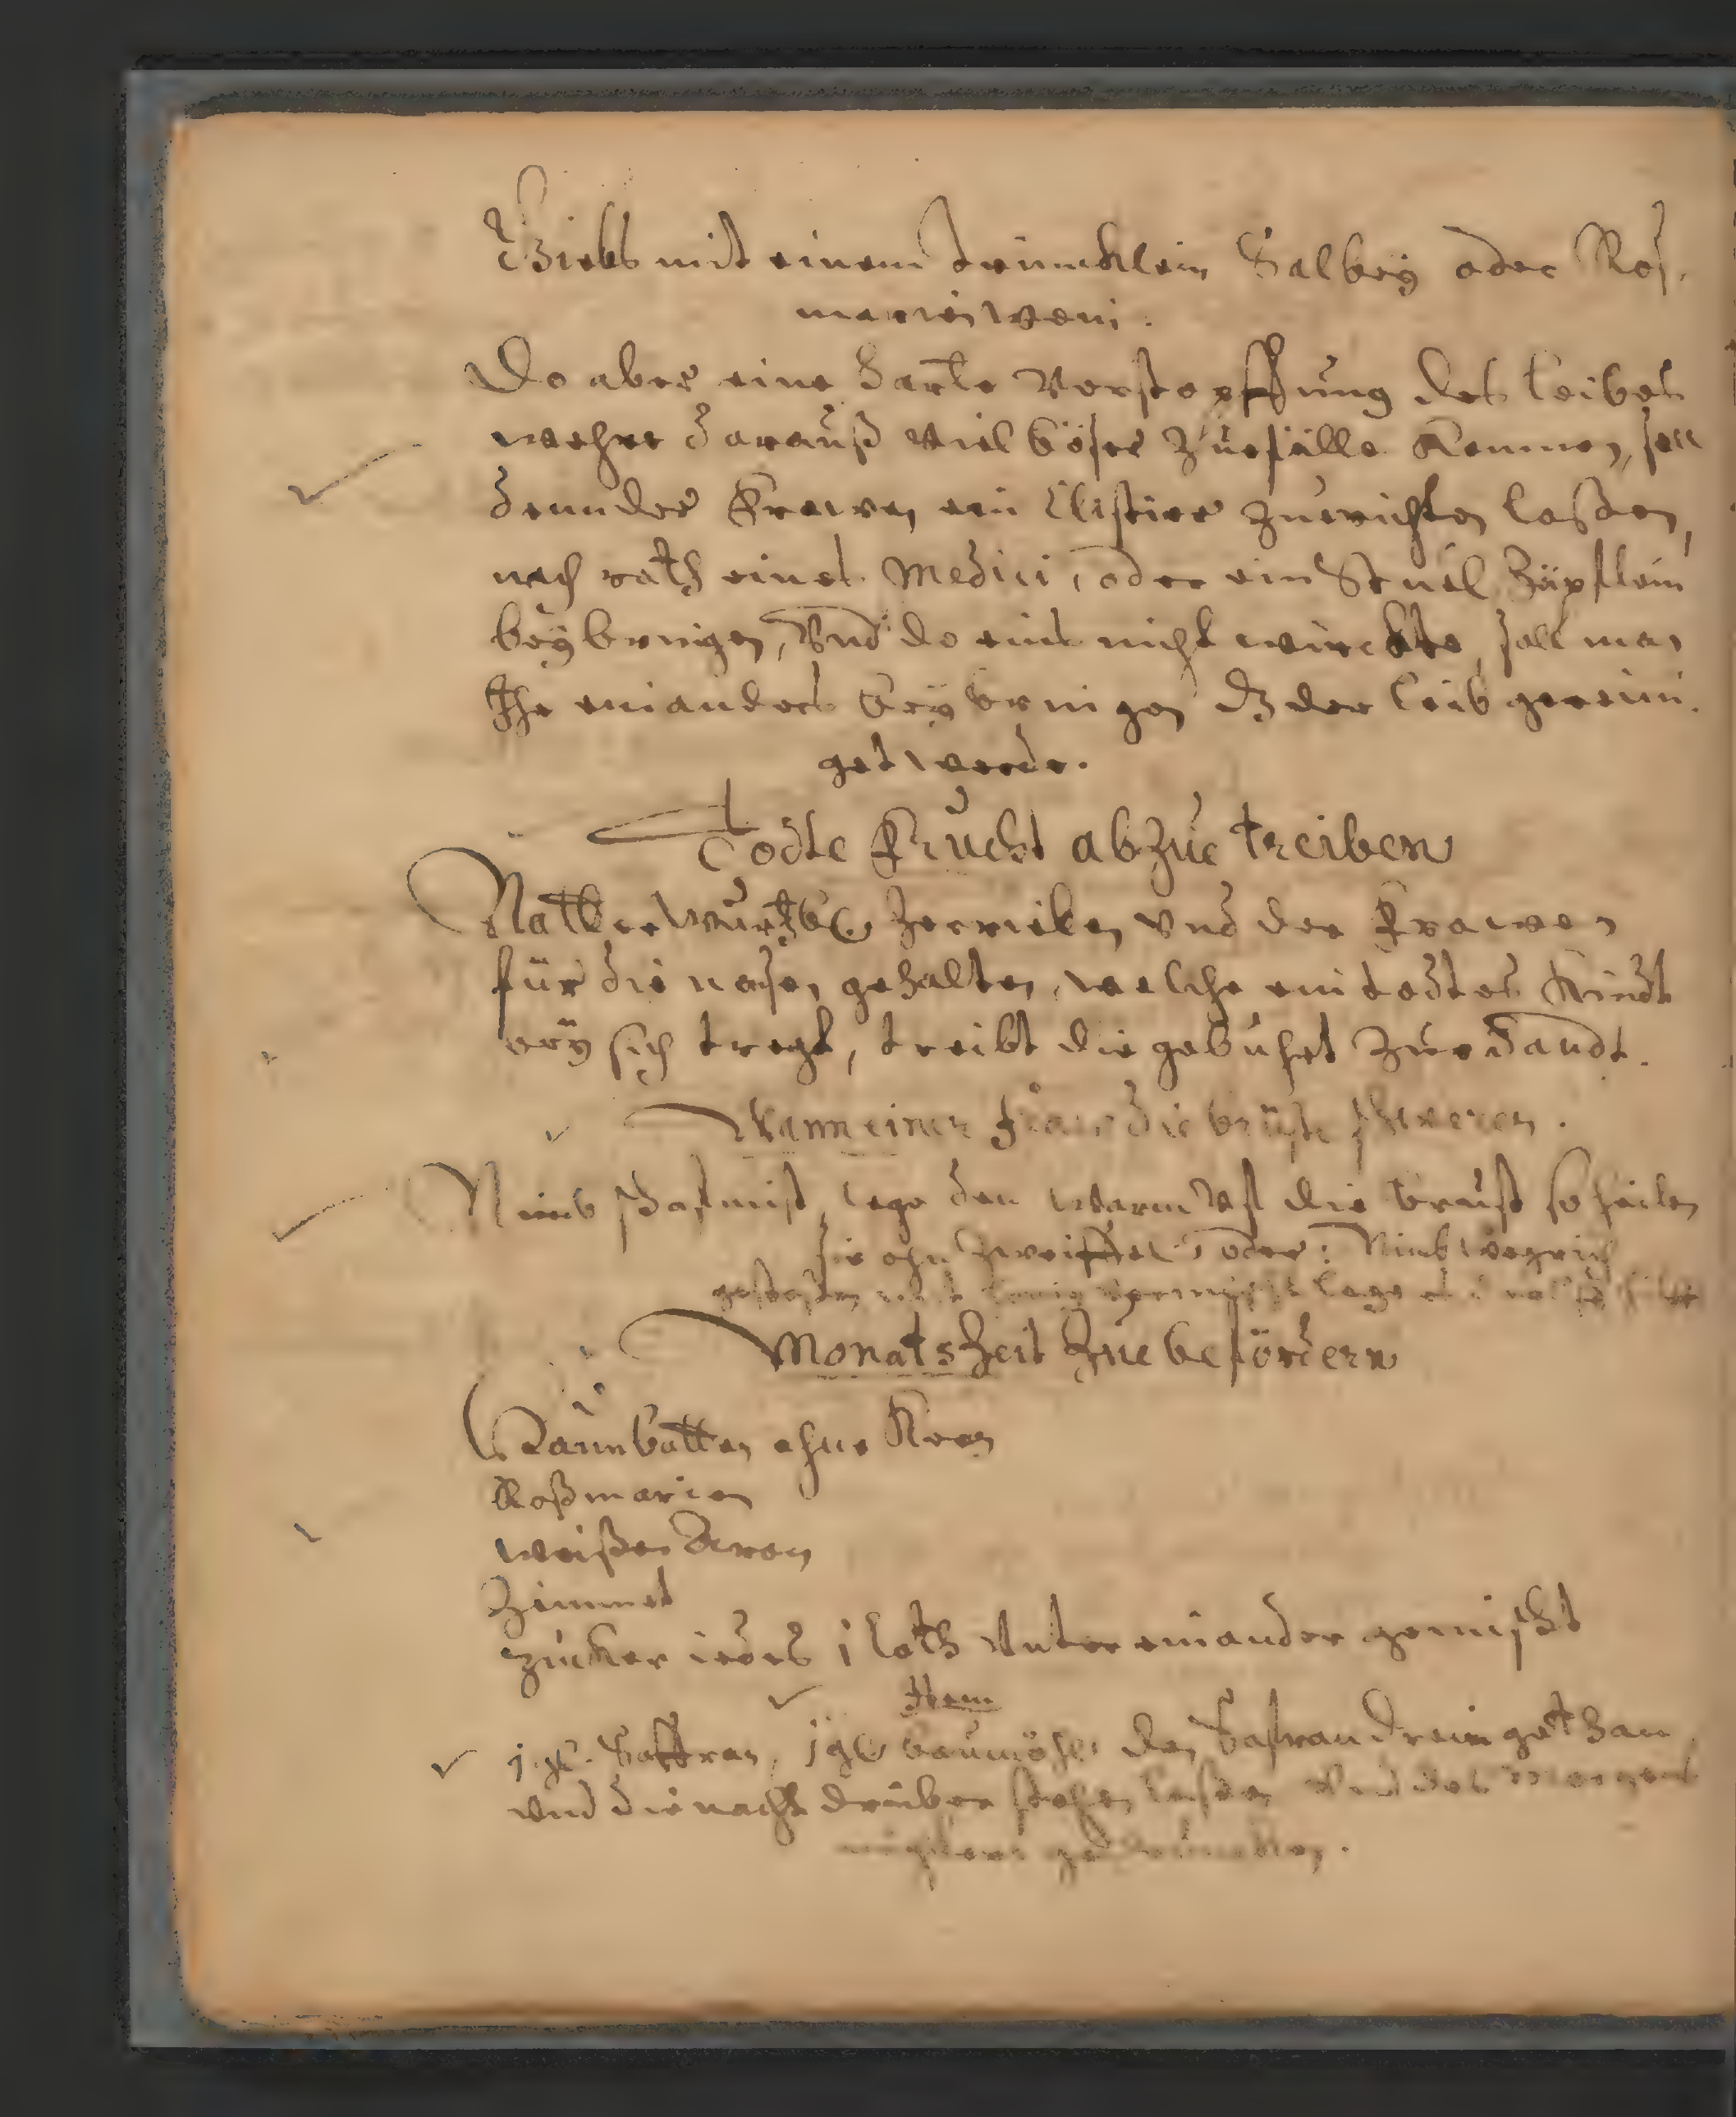 Giebs mit einem trüncklein Salbey oder Roß-
marien wein.
Do aber eine harte Verstopffung des leibes
wehre darauß viel böser Zuefälle kommen, soll
denn der Frawen ein Clistier zurichten lassen,
nach rath eines Medici, oder ein Stuel Zäpflein
beybringen, Vnd do eins nicht würckte, soll man
Ihr ein anders beybringen dz der leib gereini-
get werde.
Todte Frucht abzue treiben
Natterwurtz zerrieben vnd der Frawen
für die nasen gehalten, welche ein todtes Kindt
bey sich tregt, treibt die gebuhrt zue handt.
Wann einer fraw die brüste schweren.
Nimb schafmist, lege den warm vf die brust so heilen
sie ohn Zweiffel, oder: Nimb wegrich
gestossen mit honig vermischt lege
Monats Zeit Zue befördern
Lohrbeern ohne Kern
Roßmarien
weissen Aron
Zimmet
Zucker iedes 1 loth Vnter einander gemischt
Item
Saffran, baumöhl den Safran drein gethan
vnd die nacht drüber stehen lassen Vnd des Morgens
nüchtern getruncken.